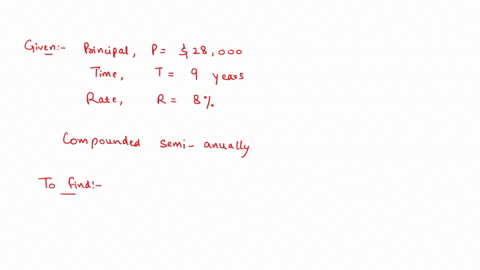 Given:- Principal, P = $28,000
Time, T = 9 years
Rate, R = 8%
Compounded semi-anually
To find:-